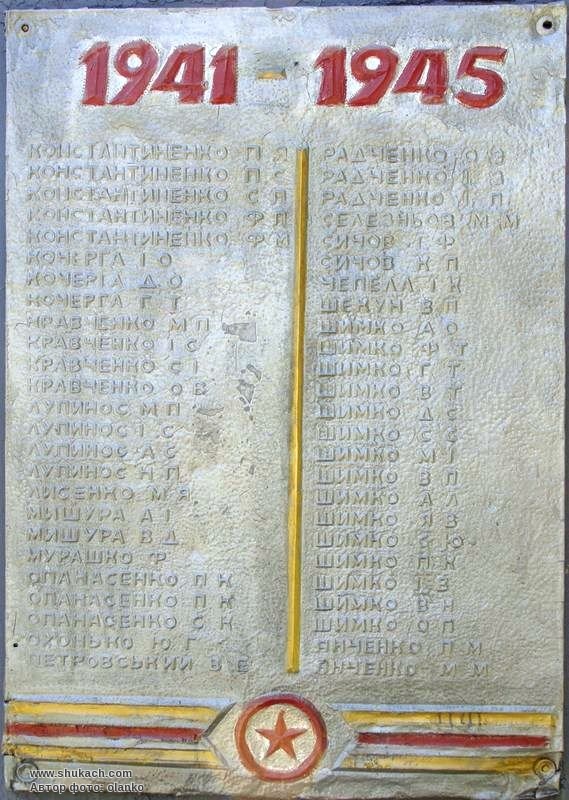 1941 - 1945
КОНСТАНТИНЕНКО П Я
КОНСТАНТИНЕНКО П С
КОНСТАНТИНЕНКО С Я
КОНСТАНТИНЕНКО Ф П
КОНСТАНТИНЕНКО Ф М
КОЧЕРГА І О
КОЧЕРГА Д О
КОЧЕРГА Г Т
КРАВЧЕНКО М П
КРАВЧЕНКО І С
КРАВЧЕНКО С І
КРАВЧЕНКО О В
ЛУПИНОС М П
ЛУПИНОС І С
ЛУПИНОС А С
ЛУПИНОС Н П
ЛИСЕНКО М Я
МИШУРА А І
МИШУРА В Д
МУРАШКО Ф
ОПАНАСЕНКО П К
ОПАНАСЕНКО П К
ОПАНАСЕНКО С К
ОХОНЬКО Ю Г
ПЕТРОВСЬКИЙ В Е
РАДЧЕНКО О З
РАДЧЕНКО З
РАДЧЕНКО П
СЕЛЕЗНЬОВ М М
СИЧОВ Г Ф
СИЧОВ К П
ЧЕПЕЛА І К
ШЕКУН В П
ШИМКО А О
ШИМКО Ф Т
ШИМКО Г Т
ШИМКО В Т
ШИМКО Д С
ШИМКО С С
ШИМКО М І
ШИМКО В П
ШИМКО А Л
ШИМКО Я В
ШИМКО Ю
ШИМКО П К
ШИМКО З
ШИМКО В Н
ШИМКО О П
ЯНЧЕНКО П М
ЯНЧЕНКО М М
www.shukach.com
Автор фото: olanko